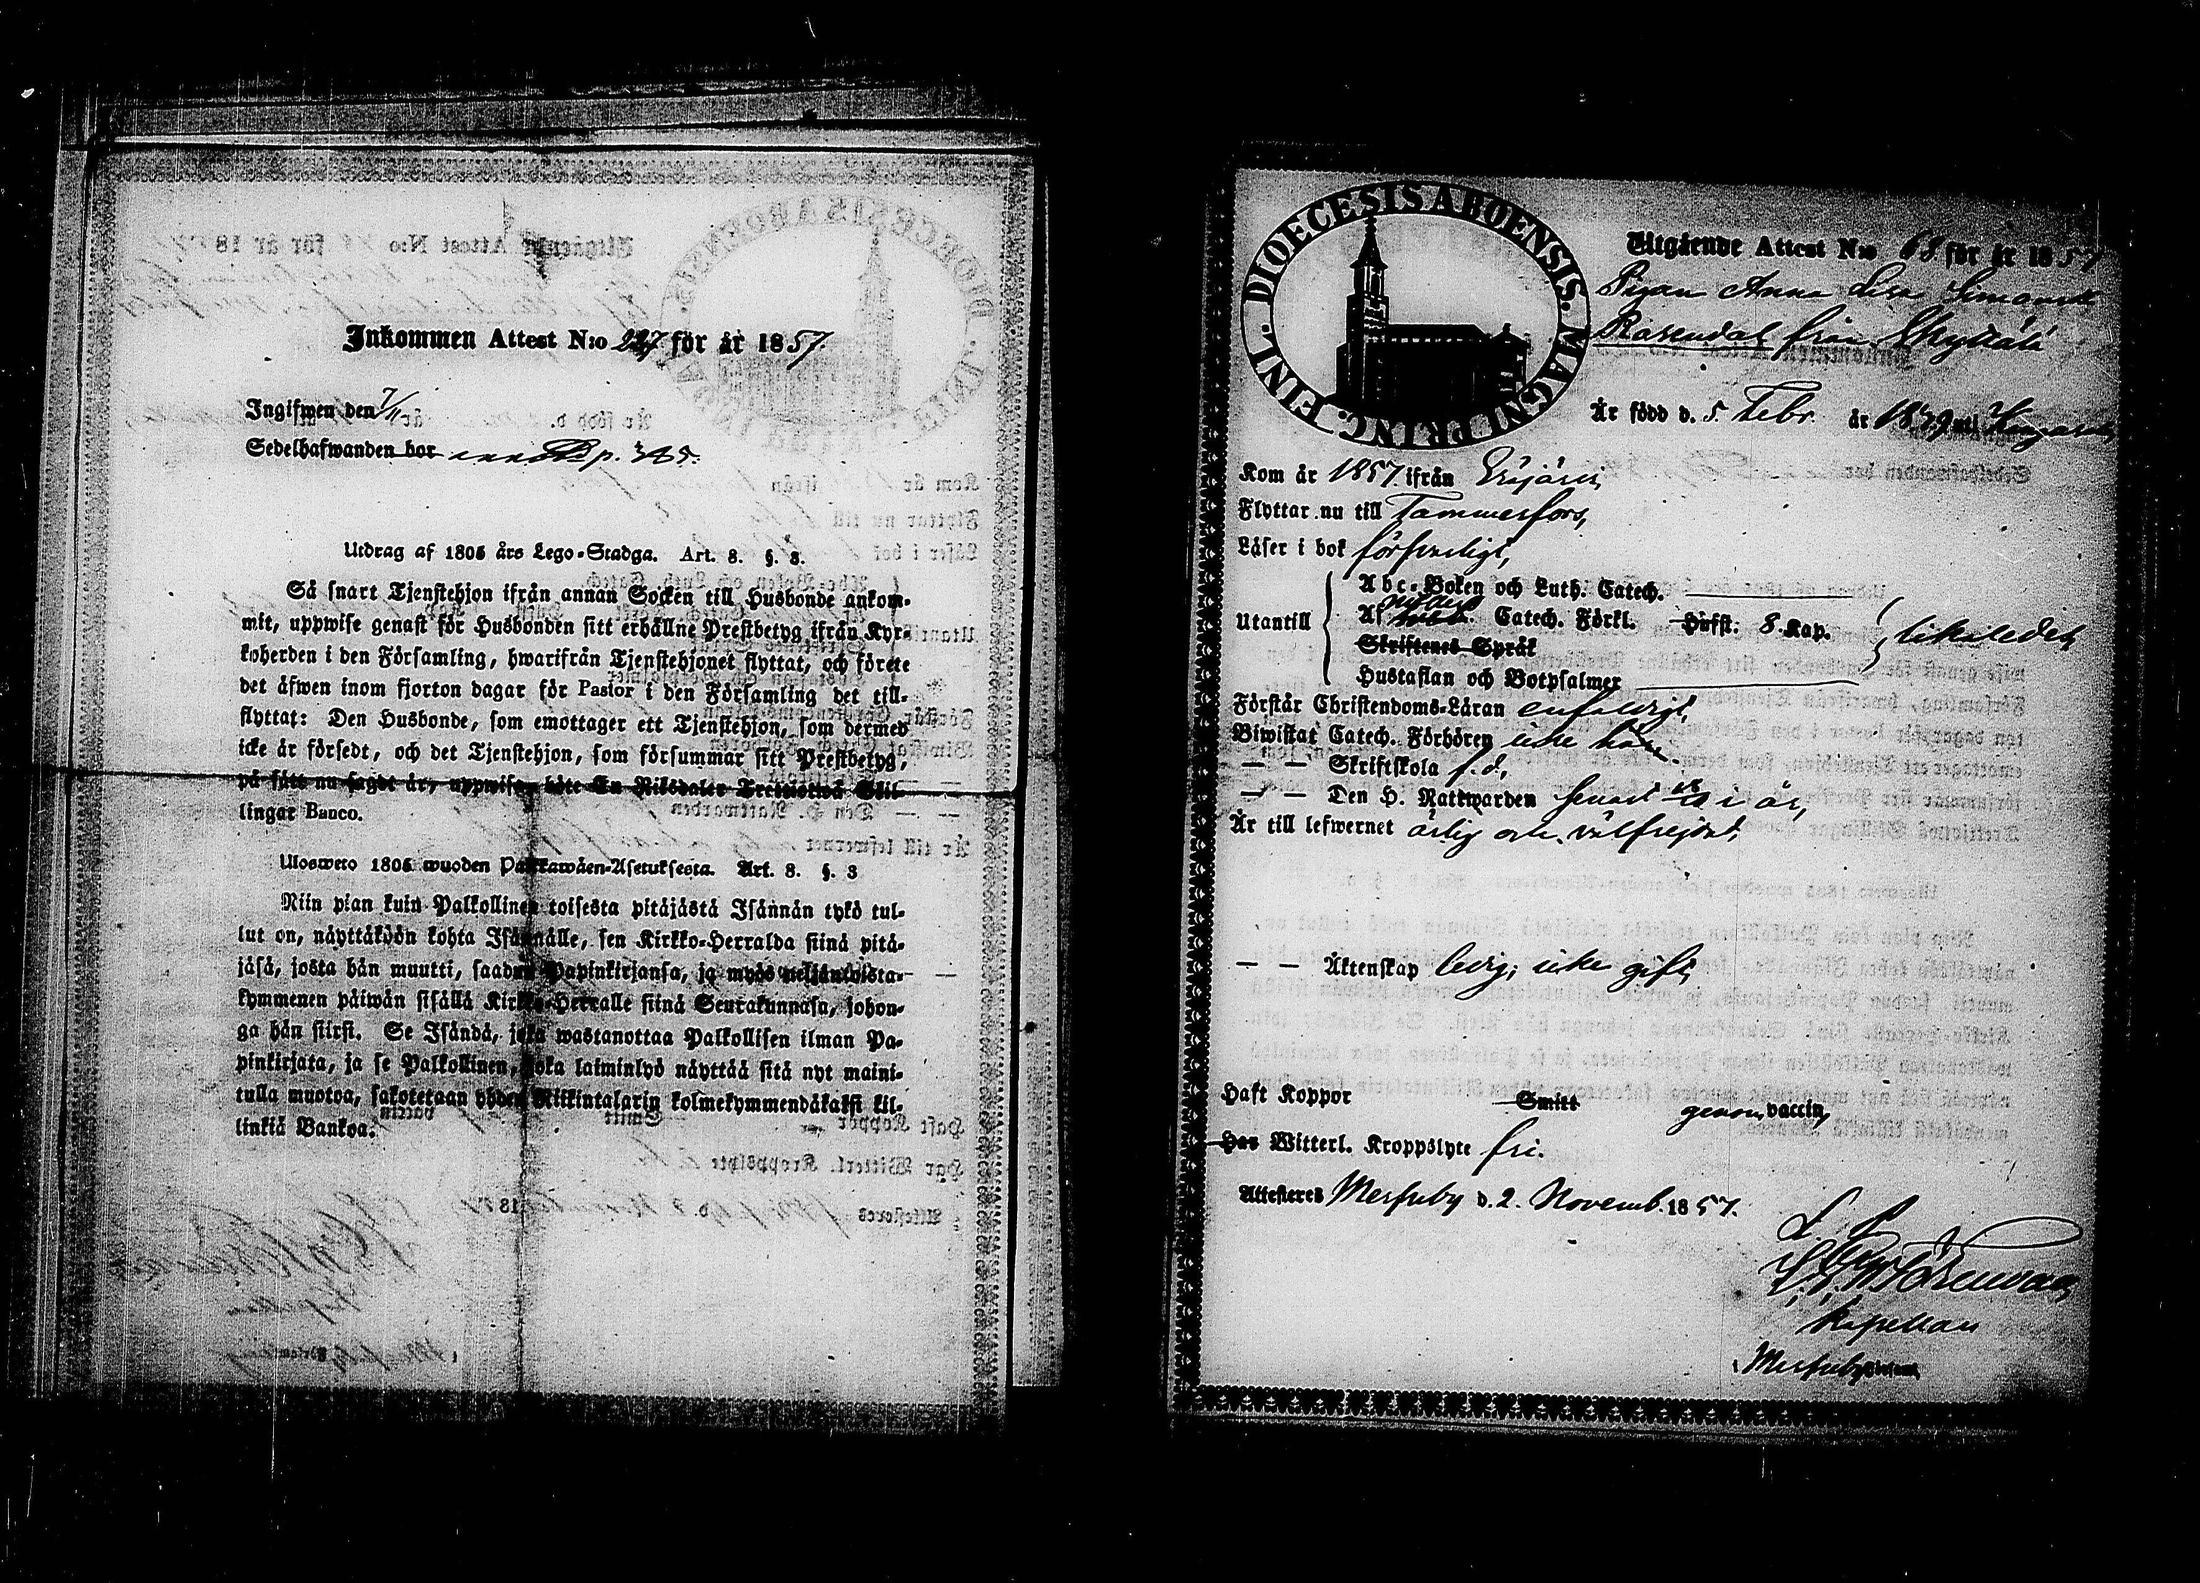 Inkommen Attest N:o 227 för år 1857.
Ingifwen den 7/11
Sedelhafwanden bor p. 325.
Utdrag af 1805 års Lego-Stadga. Art. 8. §. 3.
Så snart Tjenstehjon ifrån annan Socken till Husbonde ankom-
mit, uppwise genast för Husbonden sitt erhållne Prestbetyg ifrån Kyr-
koherden i den Församling, hwarifrån Tjenstehjonet flyttat, och förete
det äfwen inom fjorton dagar för Pastor i den Församling det till-
flyttat: Den Husbonde, som emottager ett Tjenstehjon, som dermed
icke är försedt, och det Tjenstehjon, som försummar sitt Prestbetyg,
på sätt nu sagdt är, uppwisa, böte En Riksdaler Trettiotwå Skil-
lingar Banco.
Ulosweto 1805 wuoden Palkkawäen-Asetuksesta. Art. 8. §. 3
Niin pian kuin Palkollinen toisesta pitäjästä Isännän tykö tul-
lut on, näyttäköön kohta Isännälle, sen Kirkko-Herralda siinä pitä-
jäsä, josta hän muutti, saadun Papinkirjansa, ja myös neljäntoista-
kymmenen päiwän sisällä Kirkko-Herralle siinä Seurakunnasa, johon-
ga hän siirsi. Se Isändä, joka wastanottaa Palkollisen ilman Pa-
pinkirjata, ja se Palkollinen, joka laiminlyö näyttää sitä nyt maini-
tulla muotoa, sakotetaan yhden Riikintalarin kolmekymmendäkaksi kil-
linkiä Bankoa.
FINL. DIOECESIS ABOENSIS. MAGNI PRINC.
Utgående Attest N:o 68 för år 1857
Pigan Anna Lisa Simonsdr
Rosendal från Skyttälä
Är född d. 5 Febr. år 1829 uti
Kom år 1857 ifrån Eräjärvi,
Flyttar nu till Tammerfors,
Läser i bok försvarligt,
Utantill
Abc-Boken och Luth. Catech.
Af Catech. Förkl. Hufst. 8. Kap.
likaledes,
Skriftenes Språk
Hustaflan och Botpsalmer
Förstår Christendoms-Läran enfaldigt,
Biwistat Catech. Förhören icke här.
— — Skriftskola f. d.,
— — Den H. Nattwarden senast i år,
Är till lefwernet ärlig och välfrejdad,
— — Äktenskap ledig; icke gift,
Haft Koppor Smitt genom vaccin,
Har Witterl. Kroppslyte fri.
Attesteras Messuby d. 2. Novemb. 1857.
Kapellan
i Messuby Församl.